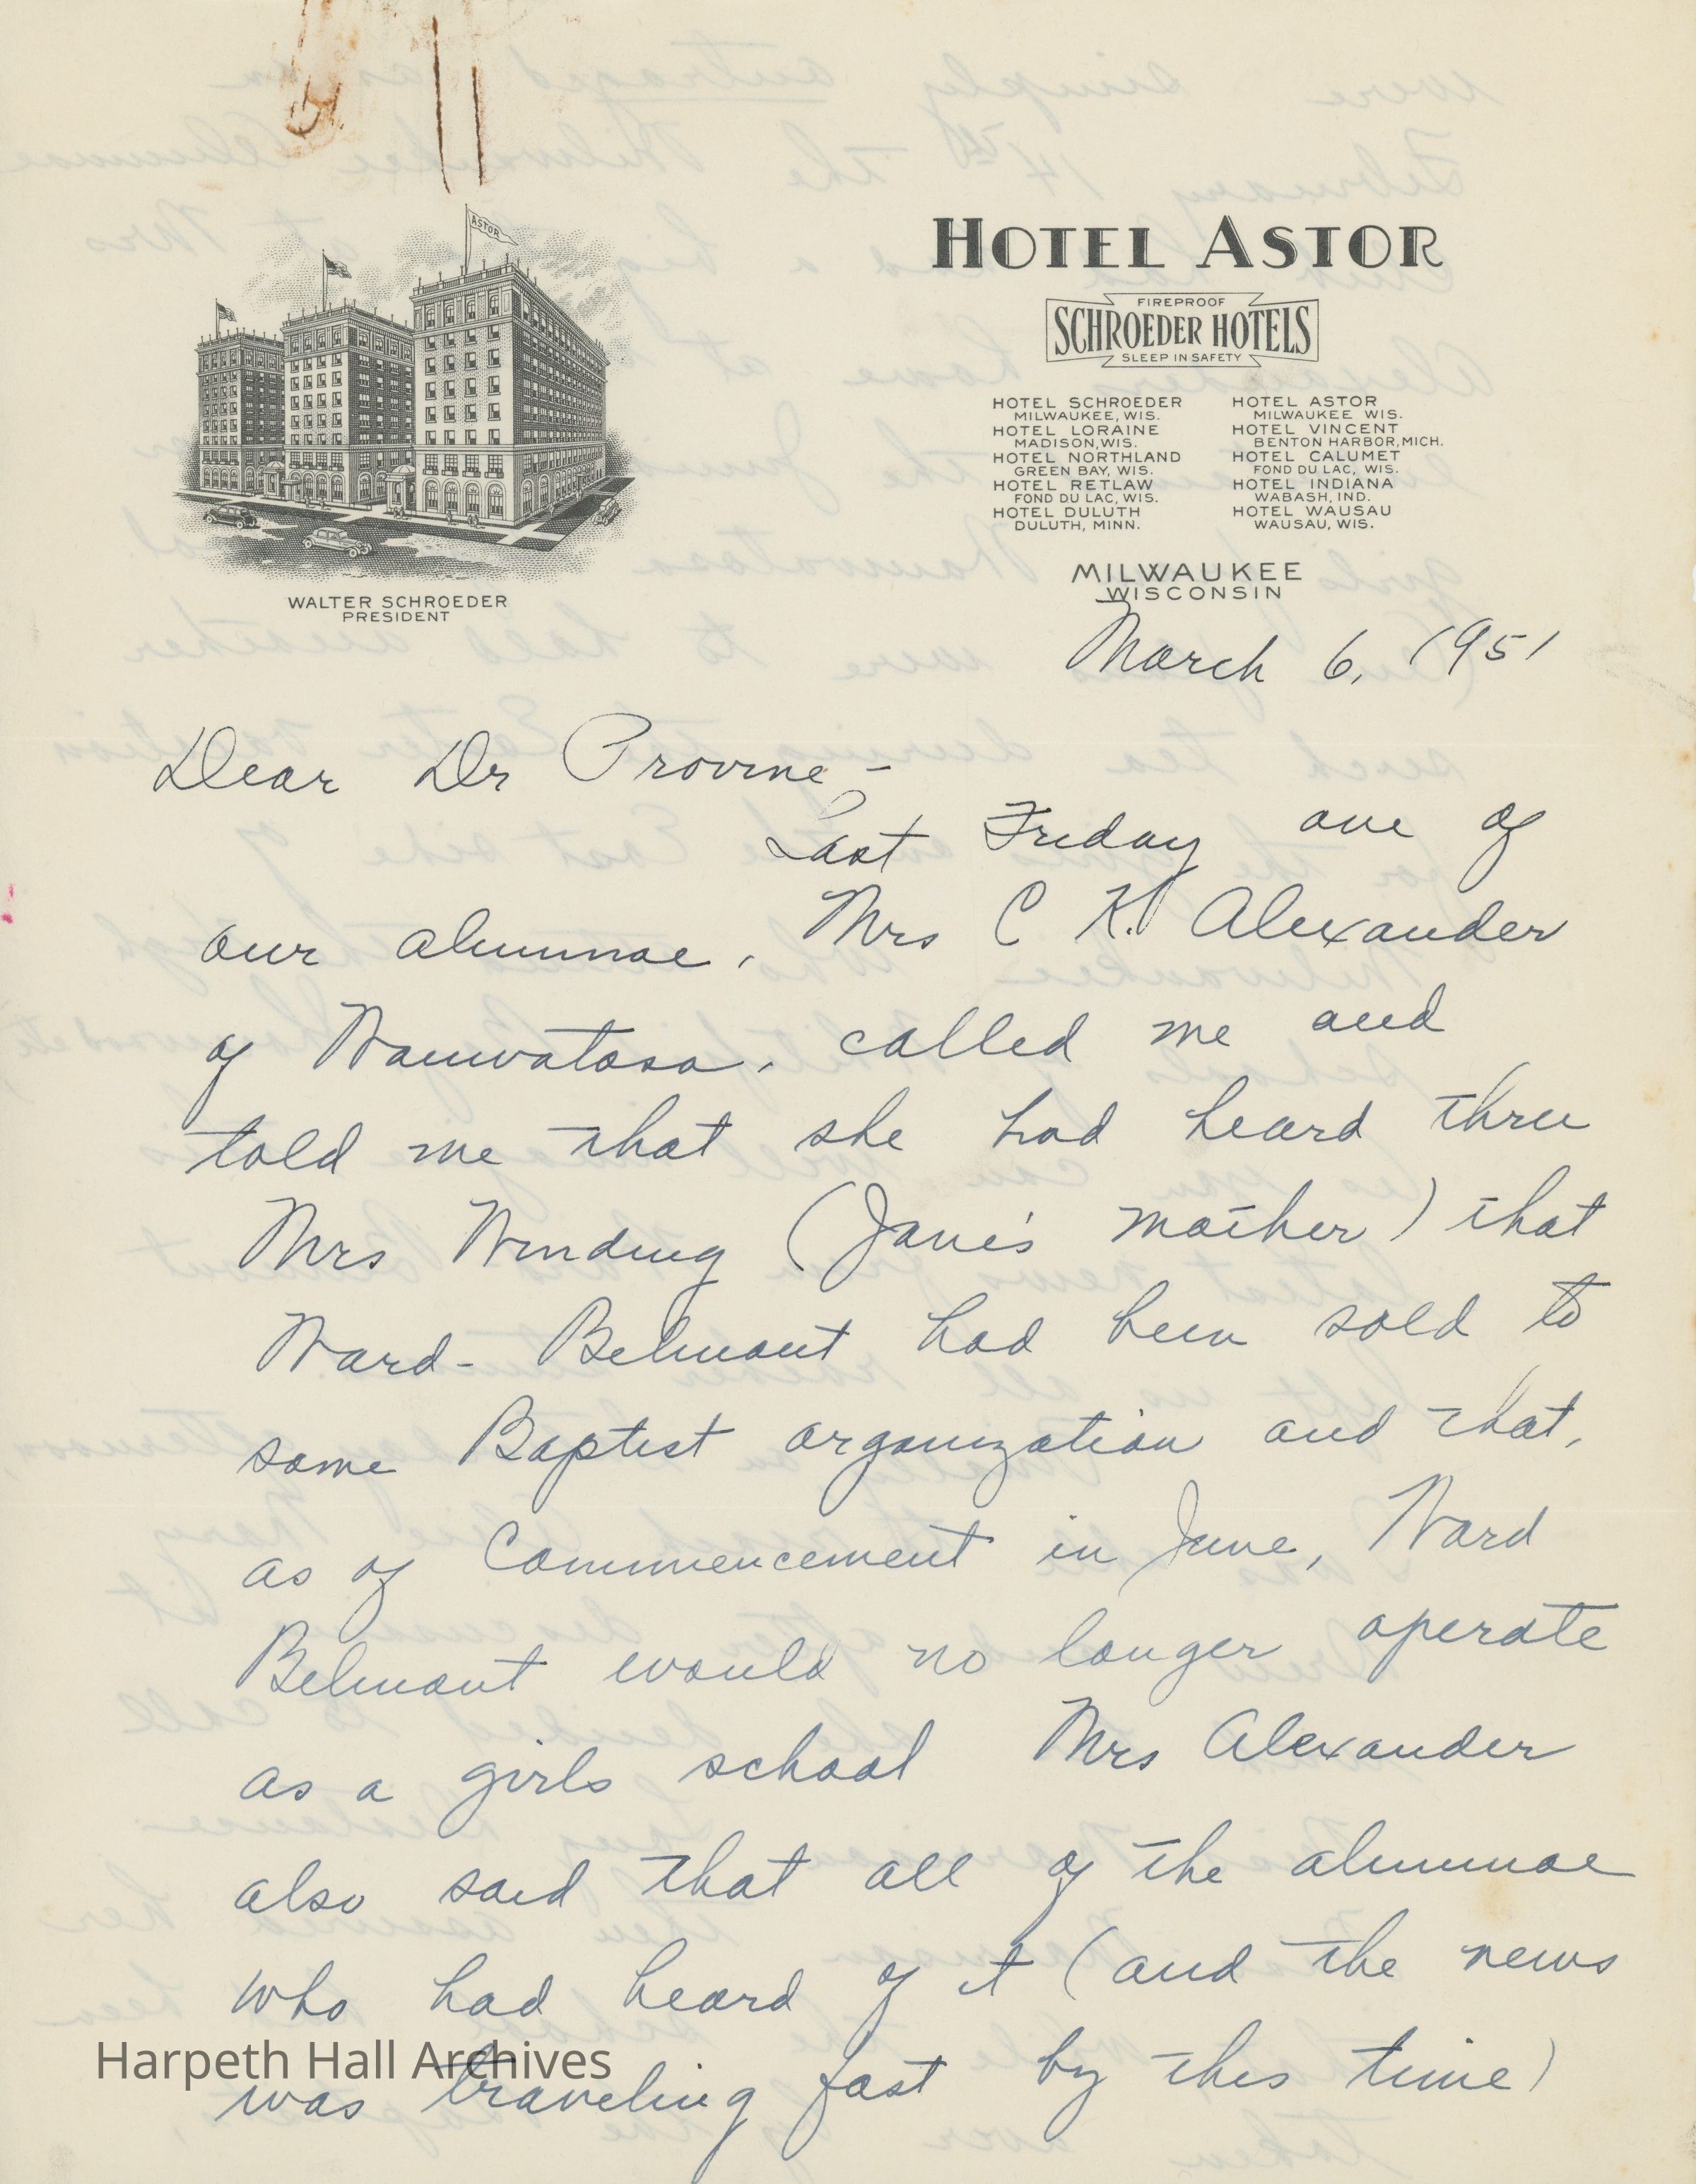 ASTOR
HOTEL ASTOR
FIREPROOF
SCHROEDER HOTELS
SLEEP IN SAFETY
HOTEL SCHROEDER
MILWAUKEE, WIS.
HOTEL LORAINE
MADISON, WIS.
HOTEL NORTHLAND
GREEN BAY, WIS.
HOTEL RETLAW
FOND DU LAC, WIS.
HOTEL DULUTH
DULUTH, MINN.
HOTEL ASTOR
MILWAUKEE WIS.
HOTEL VINCENT
BENTON HARBOR, MICH.
HOTEL CALUMET
FOND DU LAC, WIS.
HOTEL INDIANA
WABASH, IND.
HOTEL WAUSAU
WAUSAU, WIS.
MILWAUKEE
WISCONSIN
WALTER SCHROEDER
PRESIDENT
March 6, 1951
Dear Dr Provine -
Last Friday one of
our alumnae, Mrs C K. Alexander
of Wauwatosa, called me and
told me that she had heard thru
Mrs Winding (Jane's mother) that
Ward-Belmont had been sold to
some Baptist organization and that,
as of Commencement in June, Ward
Belmont would no longer operate
as a girls school Mrs Alexander
also said that all of the alumnae
who had heard of it (and the news
was traveling fast by this time)
Harpeth Hall Archives